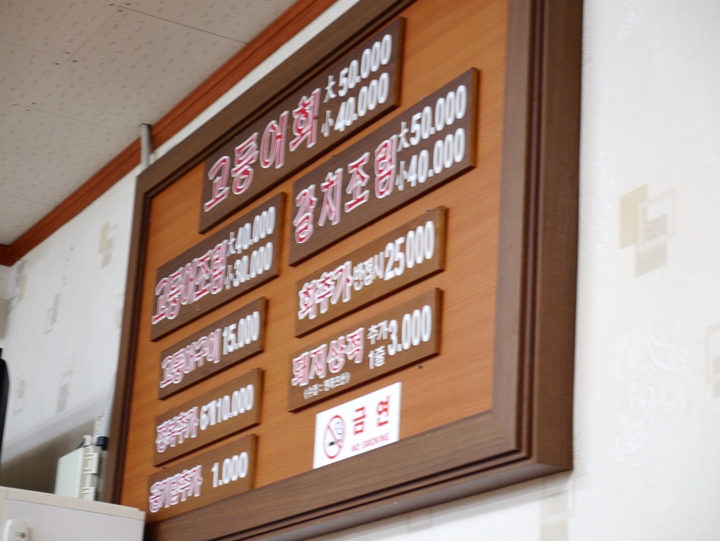 고등어회 大 50.000
小 40.000
갈치조림 大 50.000
小 40.000
고등어조림 大 40.000
小 30.000
회추가 반접시 25000
고등어구이 15.000
돼지상적 추가 3.000
1줄
추가 6개 10.000
공기밥추가 1.000
금연
NO SMOKING